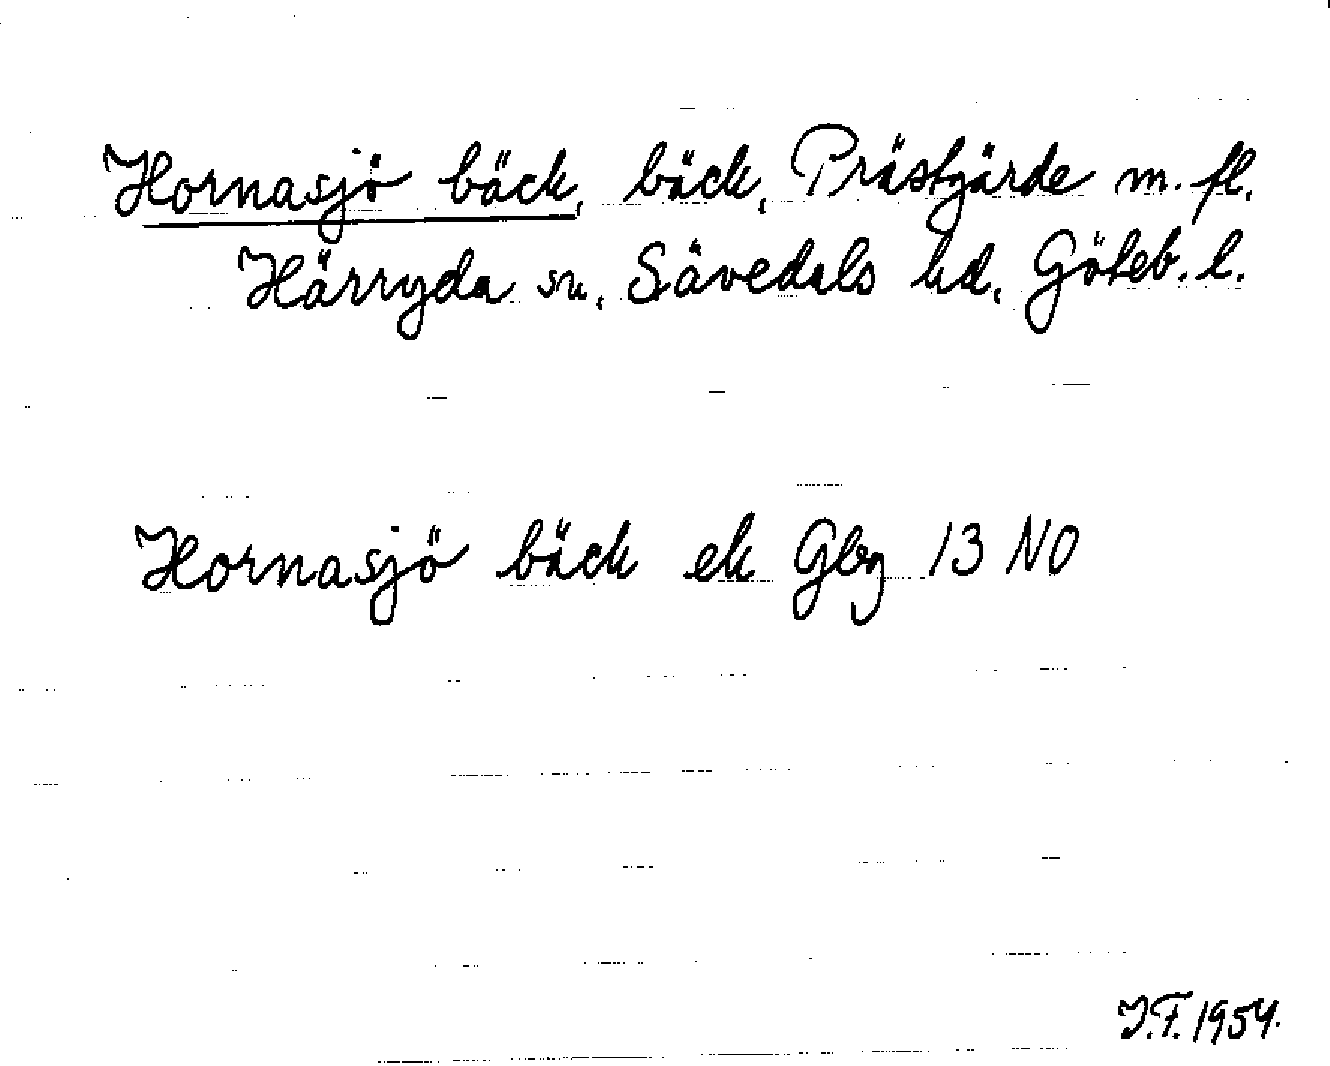 Hornasjö bäck, bäck, Prästgärde m. fl.
Härryda sn, Sävedals hd, Göteb. l.
Hornasjö bäck ek Gbg 13 NO
I.F. 1954.